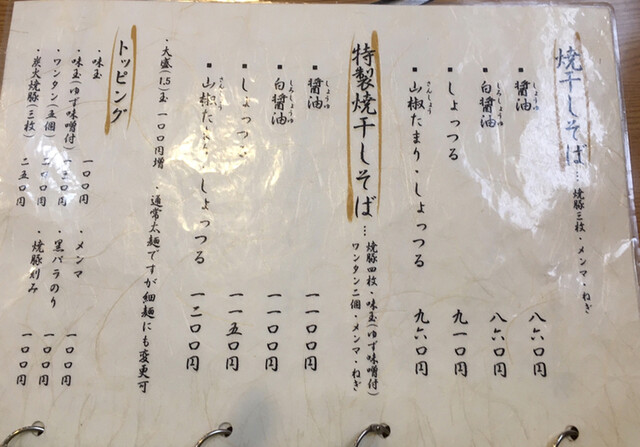 焼干しそば…焼豚三枚・メンマ・ねぎ
■醤油 八六〇円
■白醤油 八六〇円
■しょっつる 九一〇円
■山椒たまり・しょっつる 九六〇円
特製焼干しそば…焼豚四枚・味玉(ゆず味噌付)
ワンタン二個・メンマ・ねぎ
■醤油 一一〇〇円
■白醤油 一一〇〇円
■しょっつる 一一五〇円
■山椒たまり・しょっつる 一二〇〇円
・大盛(1.5)玉 一〇〇円増 ・通常太麺ですが細麺にも変更可
トッピング
・味玉 一〇〇円
・味玉(ゆず味噌付) 一三〇円
・ワンタン(五個) 二〇〇円
・炭火焼豚(三枚) 二五〇円
・メンマ 一〇〇円
・黒バラのり 一〇〇円
・焼豚刻み 一〇〇円